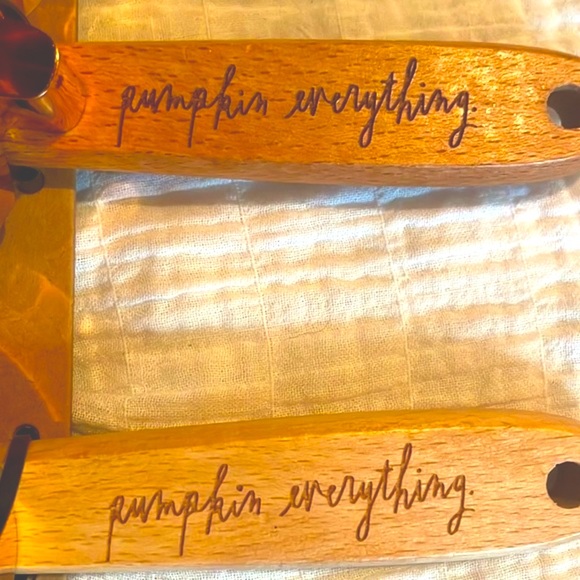 pumpkin everything.
pumpkin everything.